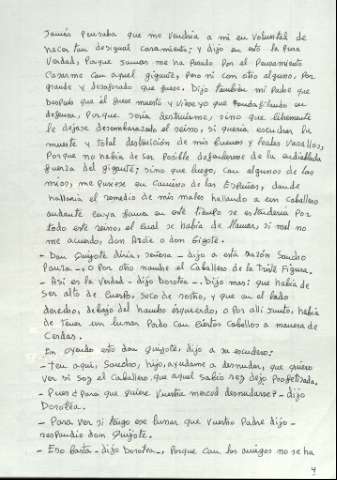 Jamás pensaba que me vendria a mi en voluntad de
hacer tan desigual casamiento; y dijo en esto la pura
verdad, porque jamas me ha pasado por el pensamiento
casarme con aquel gigante, pero ni con otro alguno, por
grande y desaforado que fuese. Dijo también mi padre que
después que él fuese muerto y viese yo que Pandafilando en
defensa, porque seria destruirme, sino que libremente
le dejase desembarazado el reino, si queria escusar la
muerte y total destruición de mis buenos y leales vasallos,
porque no habia de ser posible defenderme de la endiablada
fuerza del gigante; sino que luego, con algunos de los
mios, me pusiese en camino de las Españas, donde
hallaria el remedio de mis males hallando a un caballero
andante cuya fama en este tiempo se estenderia por
todo este reino, el cual se habia de llamar, si mal no
me acuerdo, don Azote o don Gigote.
- Don Quijote diria, señora - dijo a esta razón Sancho
Panza -, o por otro nombre el Caballero de la Triste Figura.
- Asi es la verdad - dijo Dorotea -. Dijo mas: que habia de
ser alto de cuerpo, seco de rostro, y que en el lado
derecho, debajo del hombro izquierdo, o por alli junto, habia
de tener un lunar pardo con ciertos cabellos a manera de
cerdas.
En oyendo esto don Quijote, dijo a su escudero:
- Ten aqui, Sancho, hijo, ayudame a desnudar, que quiero
ver si soy el caballero que aquel sabio rey dejo profetizado.
- Pues ¿para que quiere vuestra merced desnudarse? - dijo
Dorotea.
- Para ver si tengo ese lunar que vuestro padre dijo -
respondio don Quijote.
- Eso basta - dijo Dorotea -, porque con los amigos no se ha
4